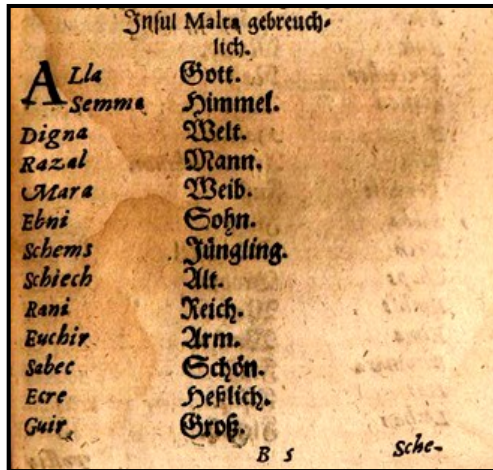 Insul Malta gebreuch-
lich.
ALla Gott.
Semma Himmel.
Digna Welt.
Razal Mann.
Mara Weib.
Ebni Sohn.
Schems Jüngling.
Schiech Alt.
Rani Reich.
Euchir Arm.
Sabec Schön.
Ecre Heßlich.
Guir Groß.
B 5 Sche-